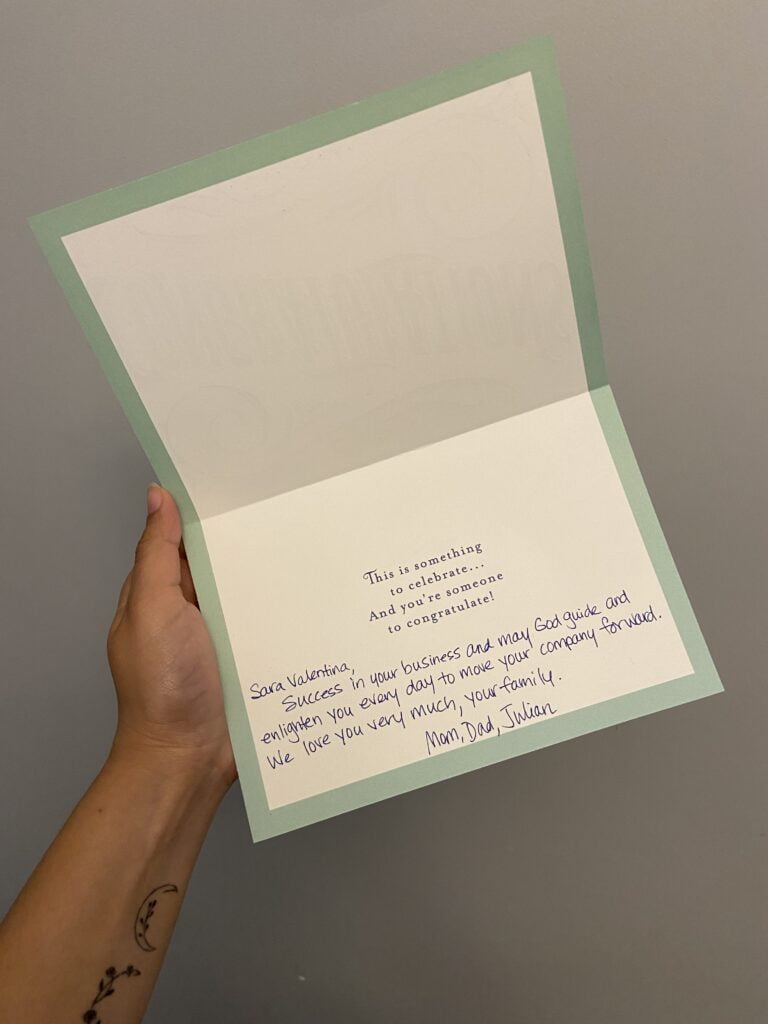 This is something
to celebrate...
And you're someone
to congratulate!
Sara Valentina,
Success in your business and may God guide and
enlighten you every day to move your company forward.
We love you very much, your family.
Mom, Dad, Julian